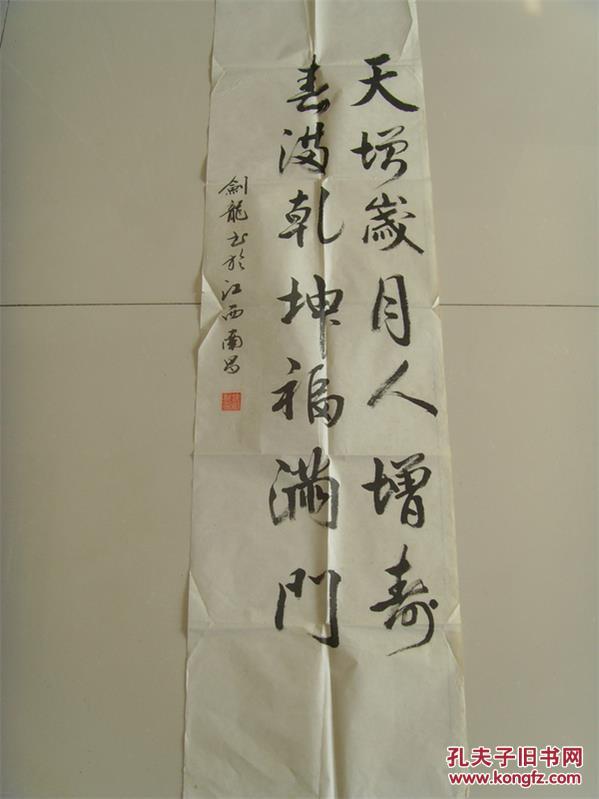 天增歲月人增寿
春满乾坤福满門
劍龍书於江西南昌
孔夫子旧书网
www.kongfz.com